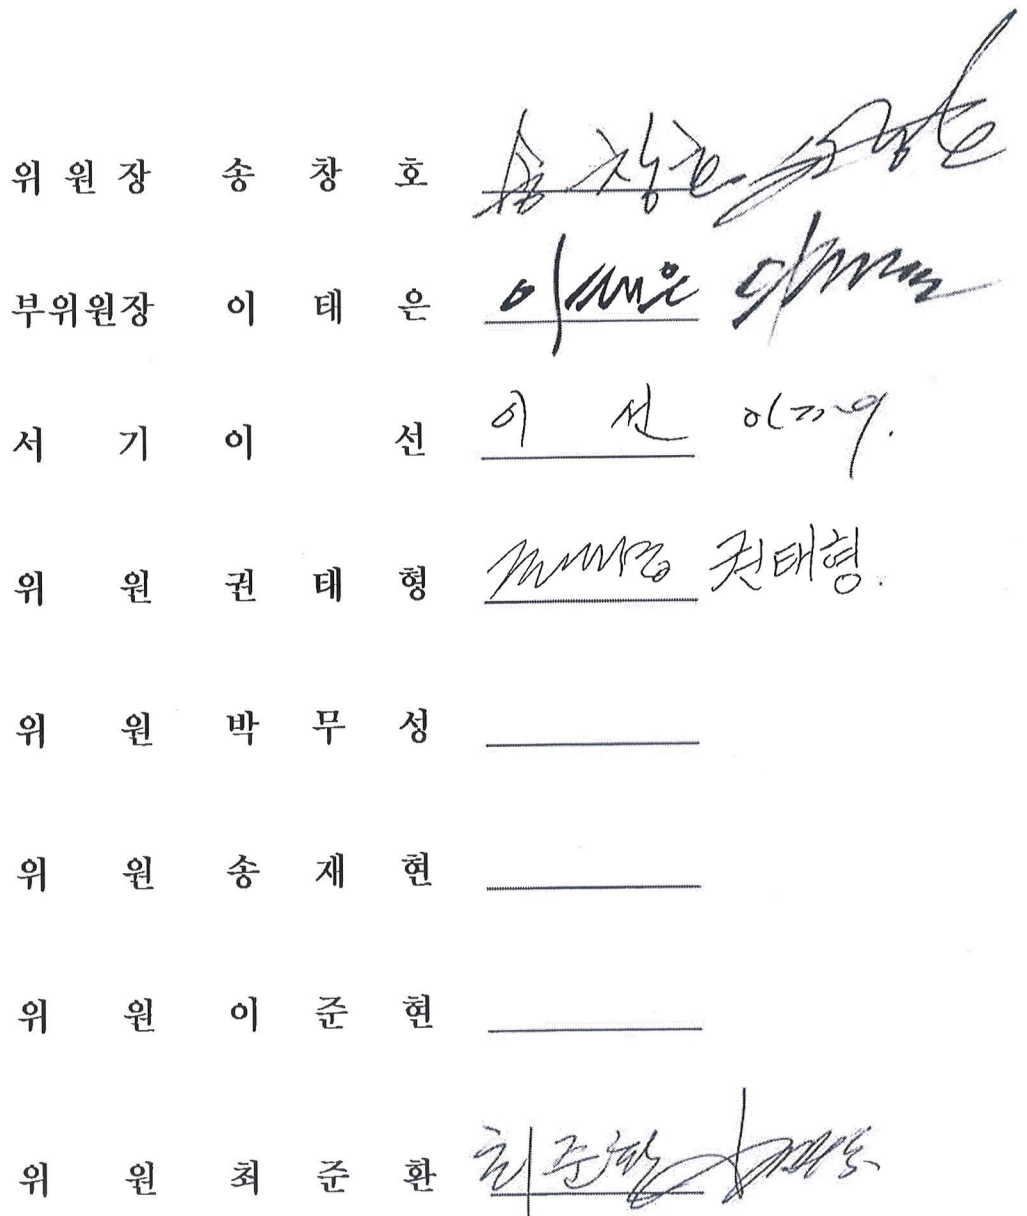 위 원 장 송 창 호 송 창호
부위원장 이 태 은 이태은
서 기 이 선 이 선
위 원 권 태 형 권태형.
위 원 박 무 성
위 원 송 재 현
위 원 이 준 현
위 원 최 준 환 최준환